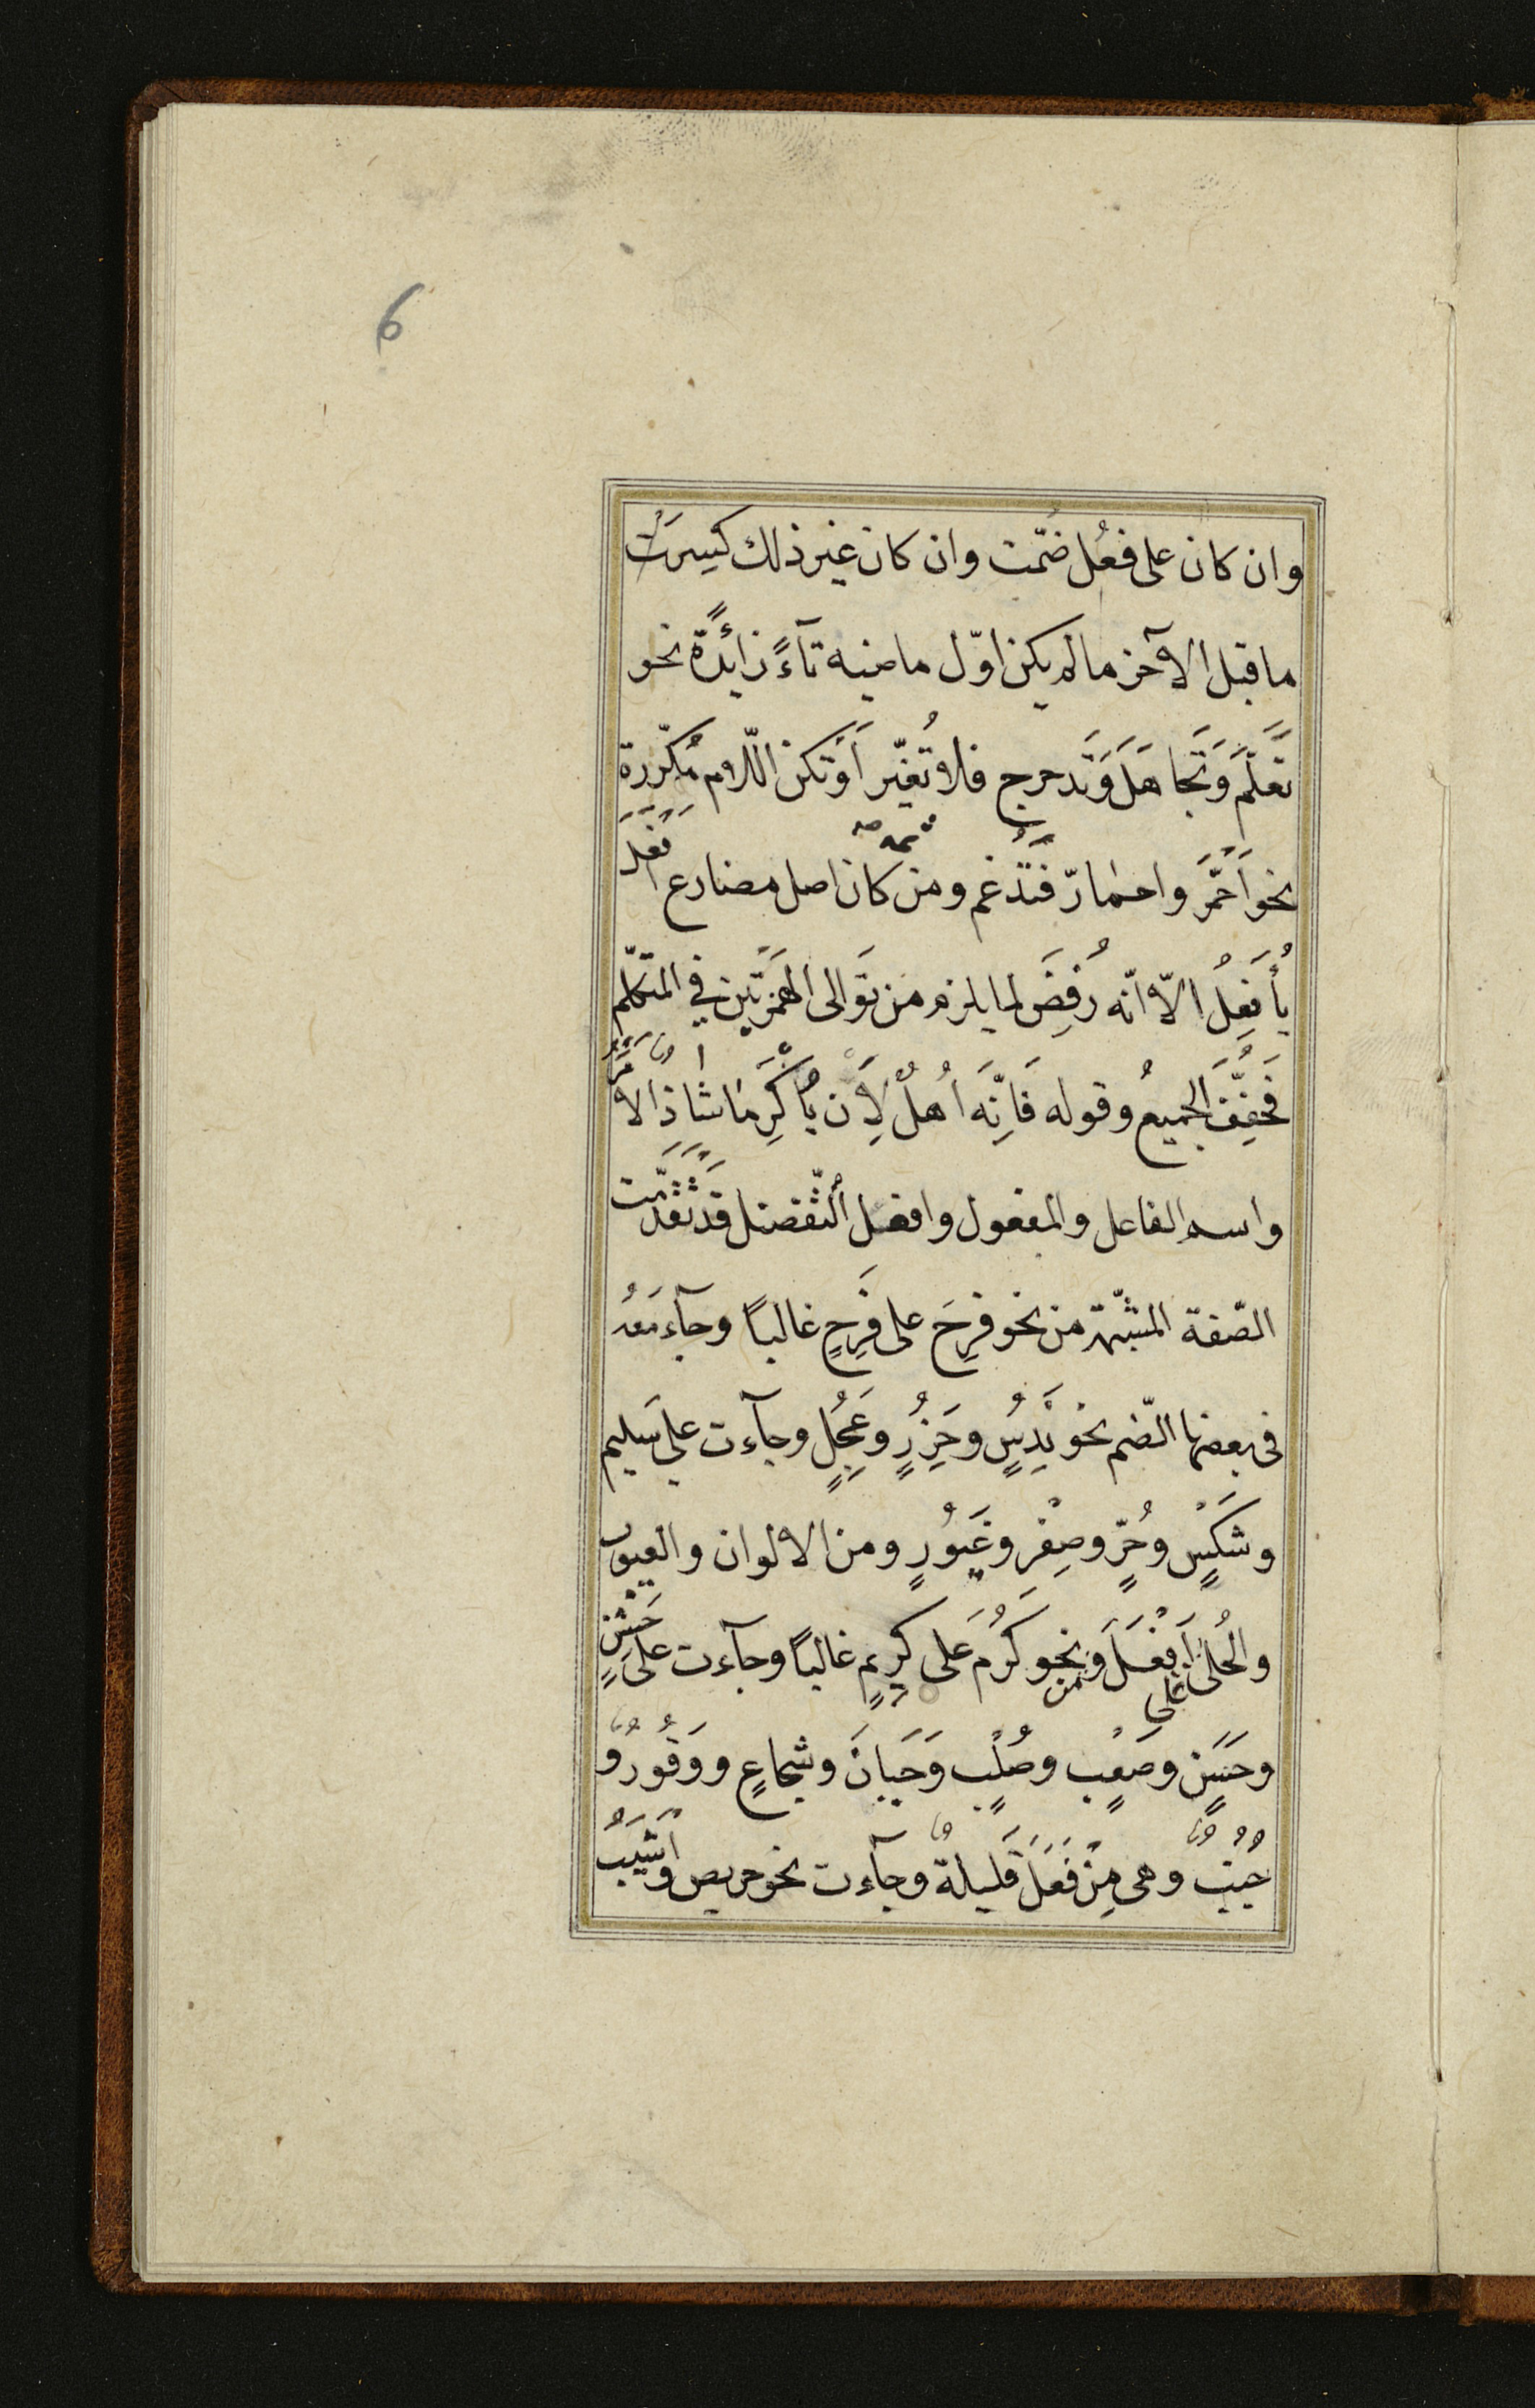 6
وان كان على فعُل ضُمّت وان كان غير ذلك كُسِرَت
ما قبل الآخر ما لم يكن اوّل ماضيه تآءً زائدةً نحو
تَعَلَّمَ وَتَجَاهَلَ وَتَدحرج فلا تُغيّر أَوْتكن اللّام مُكرّرة
نحو أحْمَرَّ واحمارّ فَتُدْغَم ومن ثمه كان اصل مضارع افْعَلَ
يُأَفْعِلُ الّا انّه رُفِضَ لما يلزم من تَوَالى الهَمْزَتَين في المتكلّم
فَخُفِّفَ الجميعُ وقوله فَاِنّه أهْلٌ لِأَن يُأَكْرَمَا شاذٌ الامر
واسم الفاعل والمفعول وافعل التّفضيل قد تَقَدَّمت
الصّفة المشبّهة من نحو فرِحَ على فَرِحٍ غالبًا وجآء معه
فى بعضها الضّم نحو نَدُِسٍ وحَذُِرٍ وعَجُِلٍ وجآءت على سَليم
وشَكْسٍ وحُرٍّ وصِفْرٍ وغَيُورٍ ومن الالوان والعيوب
والحُلىٰ على أَفْعَلَ ومن نحو كَرُمَ على كريمٍ غالبًا وجآءت على خَشِنٍ
وحَسَنٍ وصَعْبٍ وصُلْبٍ وَجَبَانَ وشجاعٍ ووَقُورٍ و
جُنُبٌ وهى مِنْ فَعَلَ قَليلةٌ وجآءت نحو حريص واَشْيَبُ